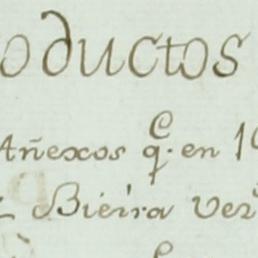 oductos
Añexos q. en 1
Bieira Ver